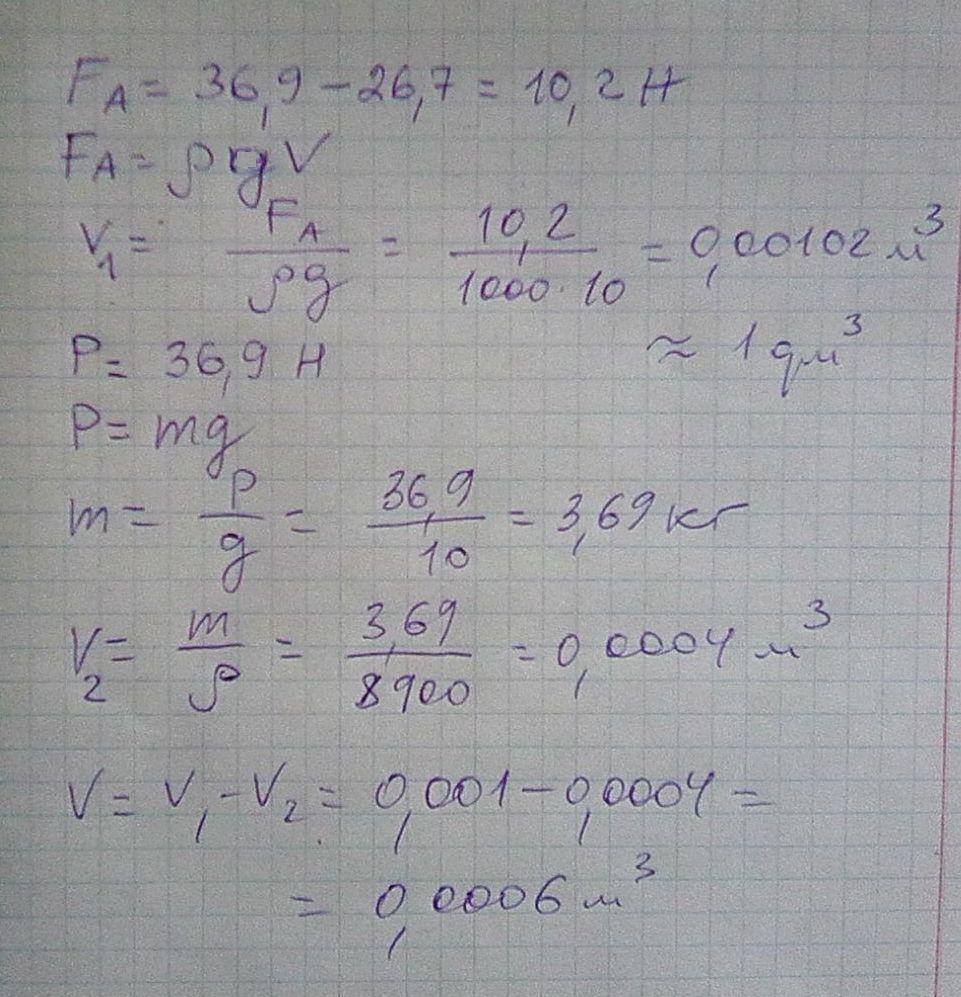 F_A = 36,9 - 26,7 = 10,2 Н
F_A = ρgV
V_1 = F_A / ρg = 10,2 / 1000·10 = 0,00102 м³
P = 36,9 Н ≈ 1 дм³
P = mg
m = P / g = 36,9 / 10 = 3,69 кг
V_2 = m / ρ = 3,69 / 8900 = 0,0004 м³
V = V_1 - V_2 = 0,001 - 0,0004 =
= 0,0006 м³